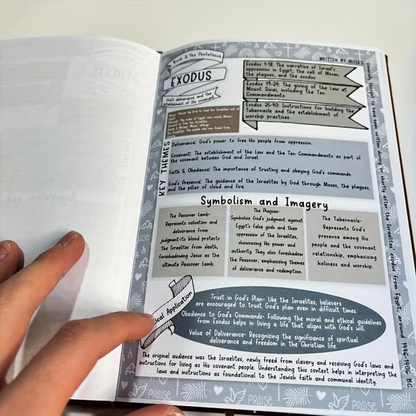 Book 2: The Pentateuch
EXODUS
God's deliverance and the
establishment of His covenant
WRITTEN BY MOSES
Exodus 1-18: The narrative of Israel's
oppression in Egypt, the call of Moses,
the plagues, and the exodus
Exodus 19-24: The giving of the Law at
Mount Sinai, including the Ten
Commandments
Exodus 25-40: Instructions for building the
Tabernacle and the establishment of
worship practices
KEY THEMES
Deliverance: God's power to free His people from oppression.
Covenant: The establishment of the Law and the Ten Commandments as part of
the covenant between God and Israel.
Faith & Obedience: The importance of trusting and obeying God's commands.
God's Presence: The guidance of the Israelites by God through Moses, the plagues,
and the pillar of cloud and fire.
Symbolism and Imagery
The Passover Lamb-
Represents salvation and
deliverance from
judgment-its blood protects
the Israelites from death,
foreshadowing Jesus as the
ultimate Passover Lamb.
The Plagues-
Symbolize God's judgment against
Egypt's false gods and their
oppression of the Israelites,
showcasing His power and
authority. They also foreshadow
the Passover, emphasizing themes
of deliverance and redemption.
The Tabernacle-
Represents God's
presence among His
people and the covenant
relationship, emphasizing
holiness and worship.
Application
Trust in God's Plan- Like the Israelites, believers
are encouraged to trust God's plan even in difficult times.
Obedience to God's Commands- Following the moral and ethical guidelines
from Exodus helps in living a life that aligns with God's will.
Value of Deliverance- Recognizing the significance of spiritual
deliverance and freedom in the Christian life.
The original audience was the Israelites, newly freed from slavery and receiving God's laws and
instructions for living as His covenant people. Understanding this context helps in interpreting the
laws and instructions as foundational to the Jewish faith and communal identity.
PRAISE
PRAISE